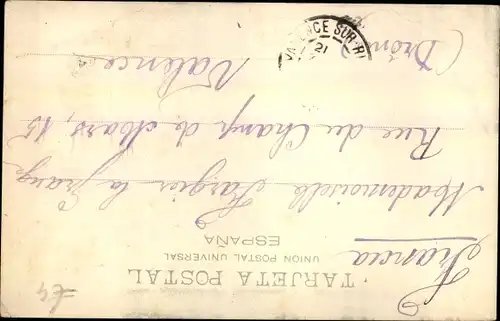 TARJETA POSTAL
UNION POSTAL UNIVERSAL
ESPAÑA
Francia
Mademoiselle Fargier la Grange
Rue du Champ de Mars, 15
Valence
(Drôme
VALENCE SUR-RH
21